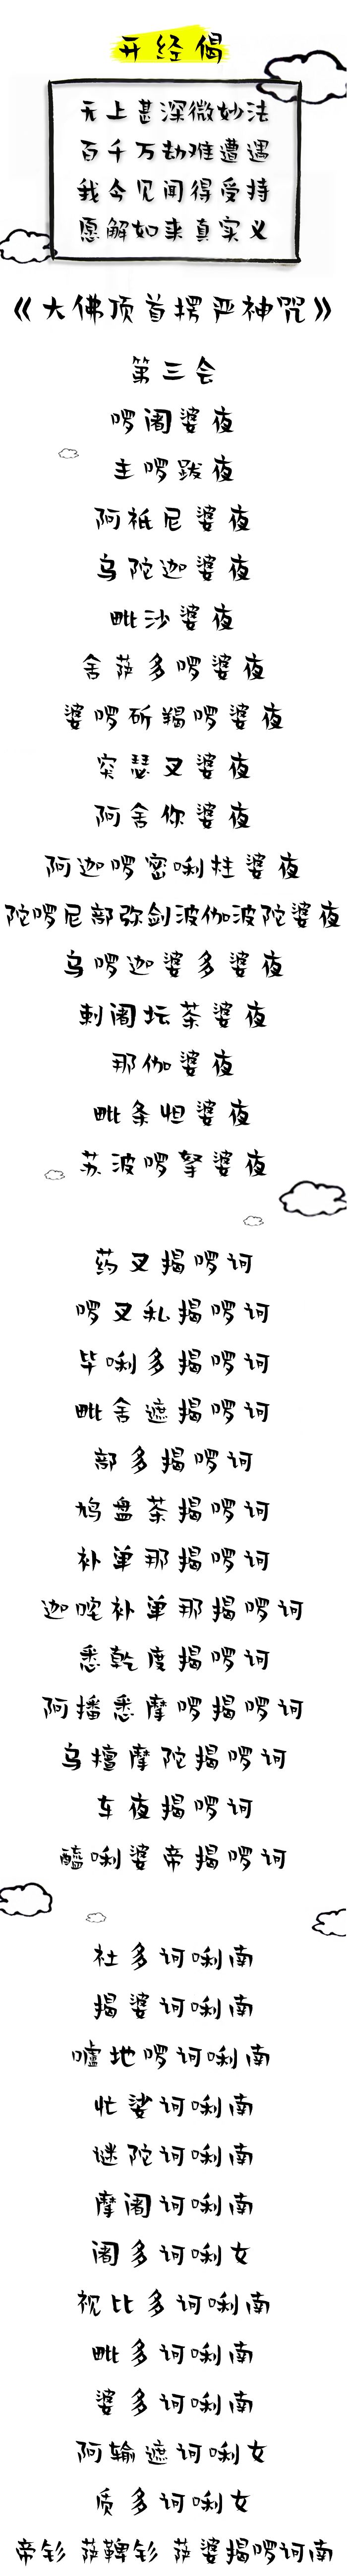 开经偈
无上甚深微妙法
百千万劫难遭遇
我今见闻得受持
愿解如来真实义
《大佛顶首楞严神咒》
第三会
啰阇婆夜
主啰跋夜
阿祇尼婆夜
乌陀迦婆夜
毗沙婆夜
舍萨多啰婆夜
婆啰斫羯啰婆夜
突瑟叉婆夜
阿舍你婆夜
阿迦啰密唎柱婆夜
陀啰尼部弥剑波伽波陀婆夜
乌啰迦婆多婆夜
剌阇坛茶婆夜
那伽婆夜
毗条怛婆夜
苏波啰拏婆夜
药叉揭啰诃
啰叉私揭啰诃
毕唎多揭啰诃
毗舍遮揭啰诃
部多揭啰诃
鸠盘茶揭啰诃
补单那揭啰诃
迦咤补单那揭啰诃
悉乾度揭啰诃
阿播悉摩啰揭啰诃
乌擅摩陀揭啰诃
车夜揭啰诃
醯唎婆帝揭啰诃
社多诃唎南
揭婆诃唎南
嚧地啰诃唎南
忙娑诃唎南
谜陀诃唎南
摩阇诃唎南
阇多诃唎女
视比多诃唎南
毗多诃唎南
婆多诃唎南
阿输遮诃唎女
质多诃唎女
帝钐 萨鞞钐 萨婆揭啰诃南